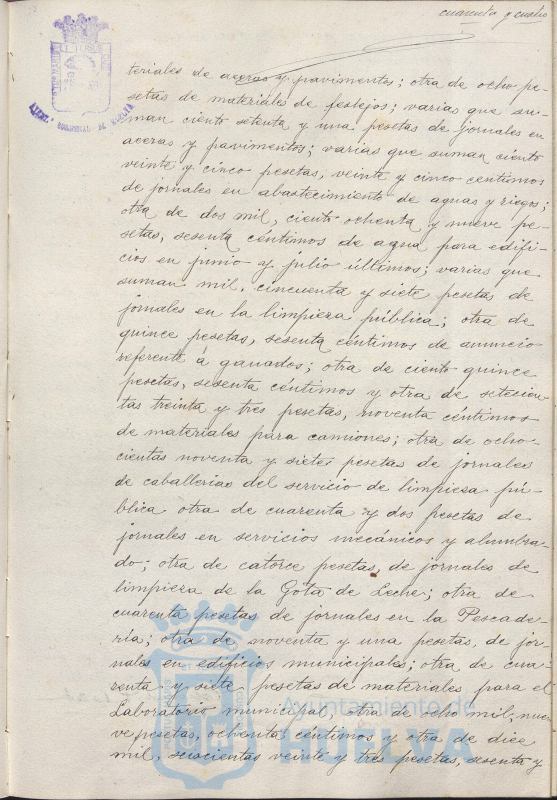 cuarenta y cuatro
teriales de aceras y pavimentos; otra de ocho pe-
setas de materiales de festejos; varias que su-
man ciento setenta y una pesetas de jornales en
aceras y pavimentos; varias que suman ciento
veinte y cinco pesetas, veinte y cinco centimos
de jornales en abastecimiento de aguas y riegos;
otra de dos mil, ciento ochenta y nueve pe-
setas, sesenta céntimos de agua para edifi-
cios en junio y julio últimos; varias que
suman mil, cincuenta y siete pesetas de
jornales en la limpieza pública; otra de
quince pesetas, sesenta céntimos de anuncio
referente a ganados; otra de ciento quince
pesetas, sesenta céntimos y otra de setecien-
tas treinta y tres pesetas, noventa céntimos
de materiales para camiones; otra de ocho-
cientas noventa y siete pesetas de jornales
de caballerias del servicio de limpieza pú-
blica otra de cuarenta y dos pesetas de
jornales en servicios mecánicos y alumbra-
do; otra de catorce pesetas, de jornales de
limpieza de la Gota de Leche; otra de
cuarenta pesetas de jornales en la Pescade-
ría; otra de noventa y una pesetas, de jor-
nales en edificios municipales; otra de cua-
renta y siete pesetas de materiales para el
Laboratorio municipal, otra de ocho mil, nue-
ve pesetas, ochenta céntimos y otra de diez
mil, seiscientas veinte y tres pesetas, sesenta y
Ayuntamiento de
HUELVA